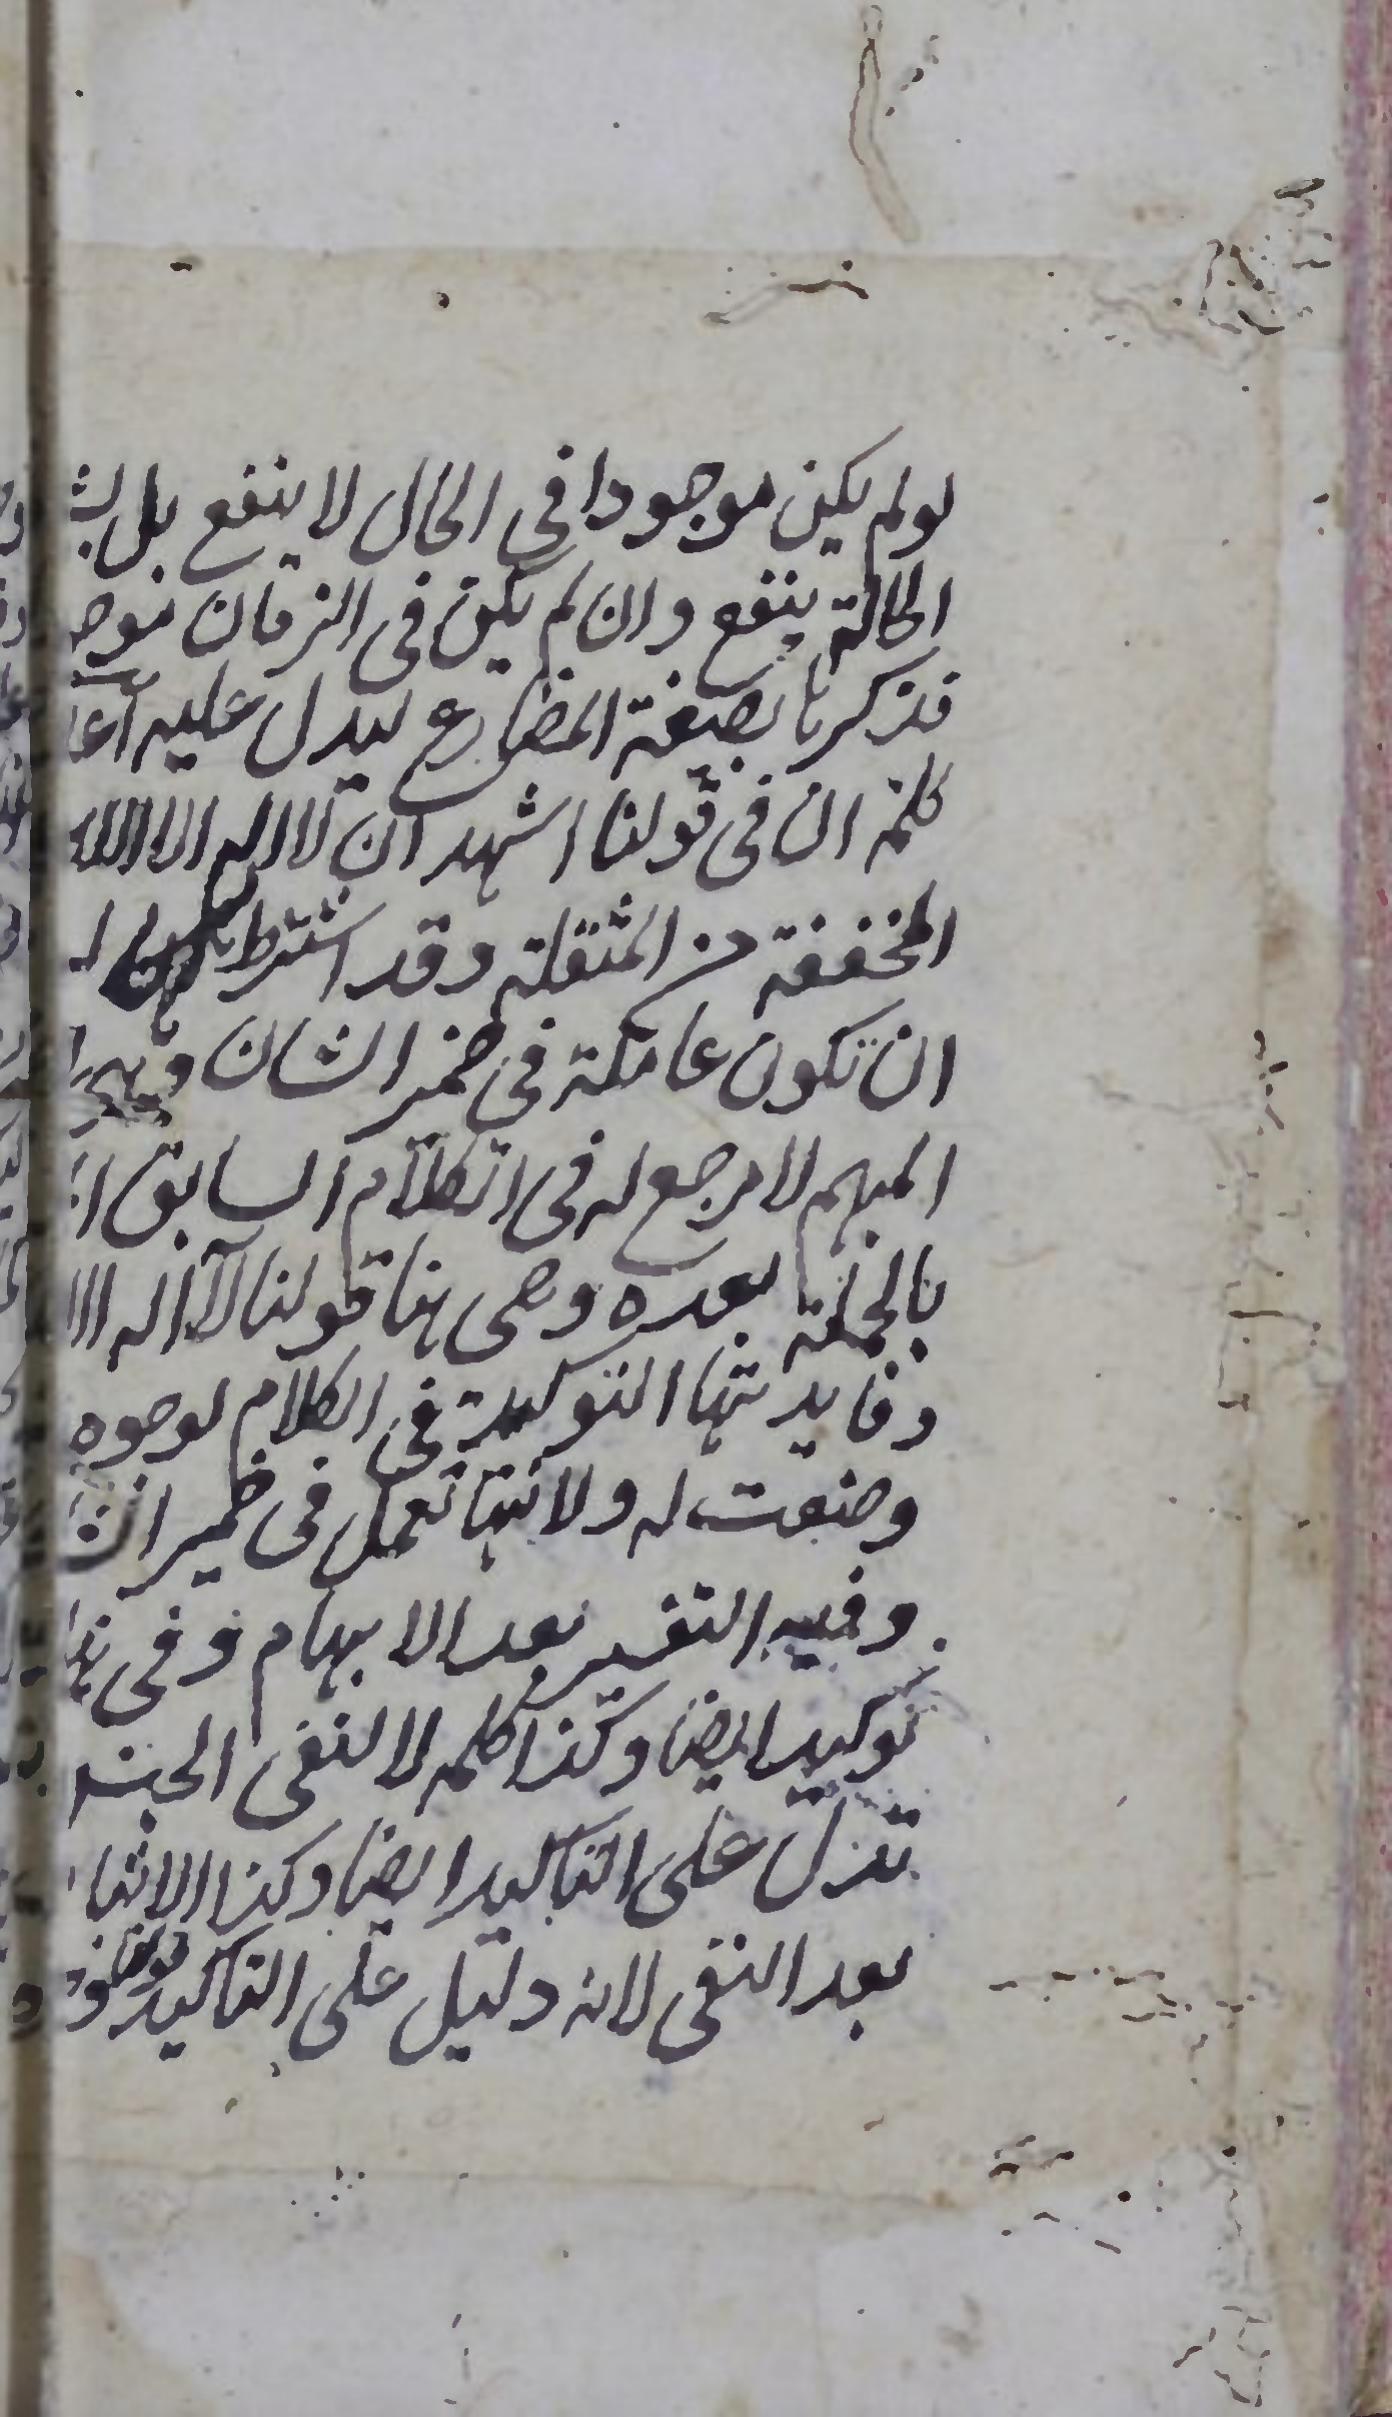 لو لم يكن موجودا في الحال لا ينفع بل
الحالة ينفع وان لم يكن في الزمان موجو
فذكرنا بصيغة المضارع ليدل عليه
كلمة ان في قولنا اشهد ان لا اله الا الله
المخففة من المثقلة وقد اشترط
ان تكون عاملة في ضمير الشان
المبهم لا مرجع له في الكلام السابق
بالجملة بعده وهي هنا قولنا لا اله الا
وفايدتها التوكيد في الكلام لوجوه
وضعت له ولانها تعمل في ضمير
وفيه التفسير بعد الابهام وفي هذا
توكيد ايضا وكذا كلمة لا لنفي الجنس
تدل على التاكيد ايضا وكذا الاثبا
بعد النفي لانه دليل على التاكيد